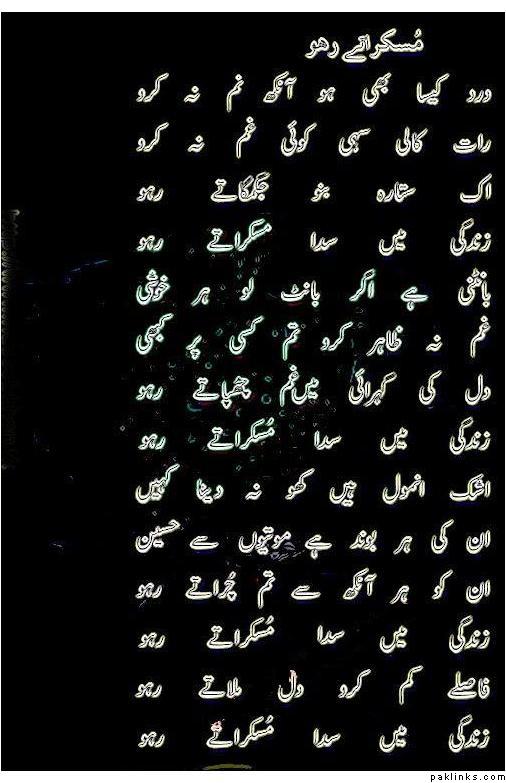 مُسکراتے رھو
درد کیسا بھی ہو آنکھ نم نہ کرو
رات کالی سہی کوئی غم نہ کرو
اک ستارہ بنو جگمگاتے رہو
زندگی میں سدا مسکراتے رہو
بانٹنی ہے اگر بانٹ لو ہر خوشی
غم نہ ظاہر کرو تم کسی پر کبھی
دل کی گہرائی میں غم چھپاتے رہو
زندگی میں سدا مُسکراتے رہو
اشک انمول ہیں کھو نہ دینا کہیں
ان کی ہر بوند ہے موتیوں سے حسین
ان کو ہر آنکھ سے تم چُراتے رہو
زندگی میں سدا مُسکراتے رہو
فاصلے کم کرو دل ملاتے رہو
زندگی میں سدا مُسکراتے رہو
paklinks.com